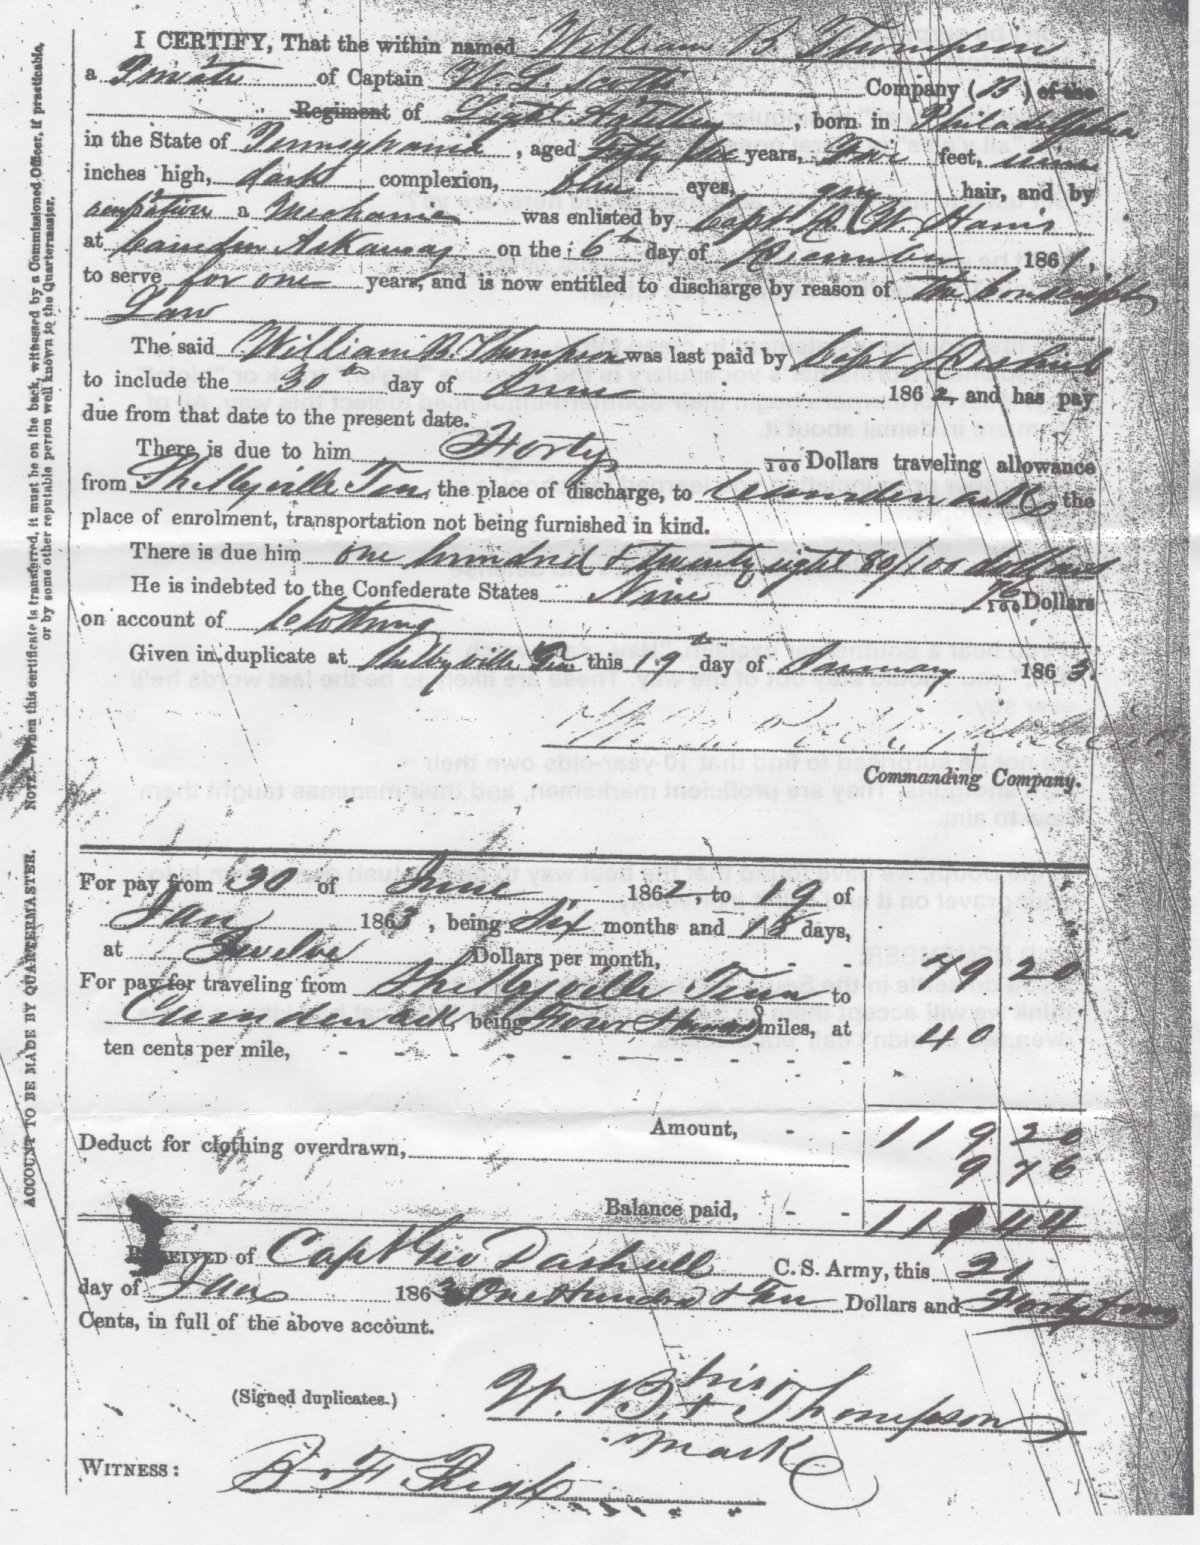 I CERTIFY, That the within named William B. Thompson
a Private of Captain W. L. Scotts Company (B) of the
Regiment of Light Artillery, born in Philadelphia
in the State of Pennsylvania, aged Fifty years, Five feet, nine
inches high, dark complexion, blue eyes, grey hair, and by
occupation a Mechanic was enlisted by Capt W. Harris
at Camden Arkansas on the 6th day of December 1861,
to serve for one years, and is now entitled to discharge by reason of the conscript
Law
The said William B. Thompson was last paid by Capt
to include the 30th day of June 1862, and has pay
due from that date to the present date.
There is due to him Forty 100 Dollars traveling allowance
from Shelbyville Ten, the place of discharge, to Camden ark the
place of enrolment, transportation not being furnished in kind.
There is due him one hundred & twenty eight 80/100 dollars
He is indebted to the Confederate States Nine 76/100 Dollars
on account of Clothing
Given in duplicate at Shelbyville Ten this 19th day of January 1863.
Commanding Company.
For pay from 30 of June 1862, to 19 of
Jan 1863, being Six months and 18 days,
at Twelve Dollars per month, - - 79 20
For pay for traveling from Shelbyville Tenn to
Camden ark, being Four Hundred miles, at 40
ten cents per mile, - - - - - - - - - -
Amount, - - 119 20
Deduct for clothing overdrawn, 9 76
Balance paid, - - 119 44
RECEIVED of Capt Geo Dashiell C. S. Army, this 21
day of Jan 1863 One Hundred & Ten Dollars and Forty four
Cents, in full of the above account.
(Signed duplicates.) W. B. his + mark Thompson
WITNESS: B. F.
NOTE.—When this certificate is transferred, it must be on the back, witnessed by a Commissioned Officer, if practicable,
or by some other reputable person well known to the Quartermaster.
ACCOUNT TO BE MADE BY QUARTERMASTER.